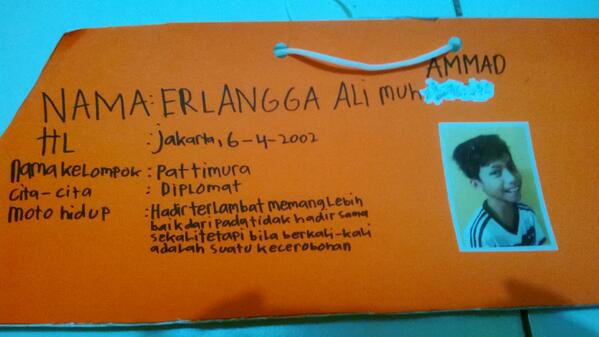 NAMA : ERLANGGA ALI MUHAMMAD
HL : Jakarta, 6-4-2002
Nama kelompok : Pattimura
Cita-cita : DIPLOMAT
Moto hidup : Hadir terlambat memang lebih
baik dari pada tidak hadir sama
sekali tetapi bila berkali-kali
adalah suatu kecerobohan